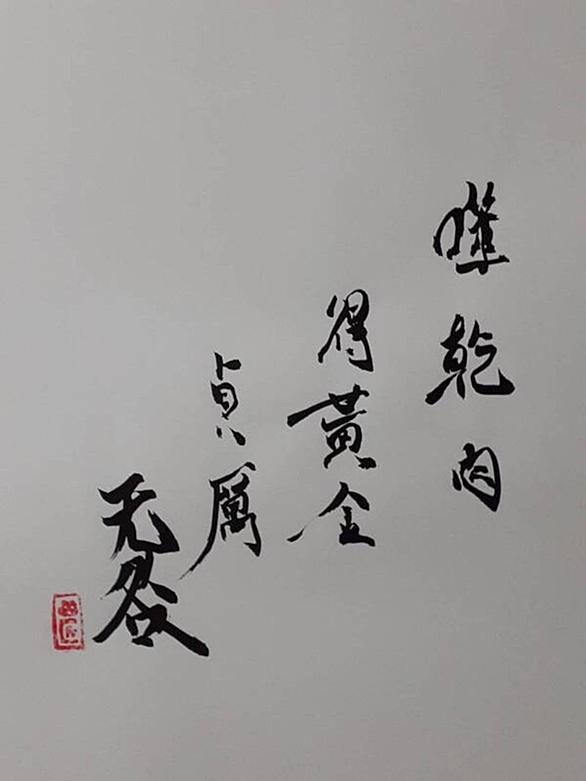 噬乾肉
得黃金
貞厲
无咎